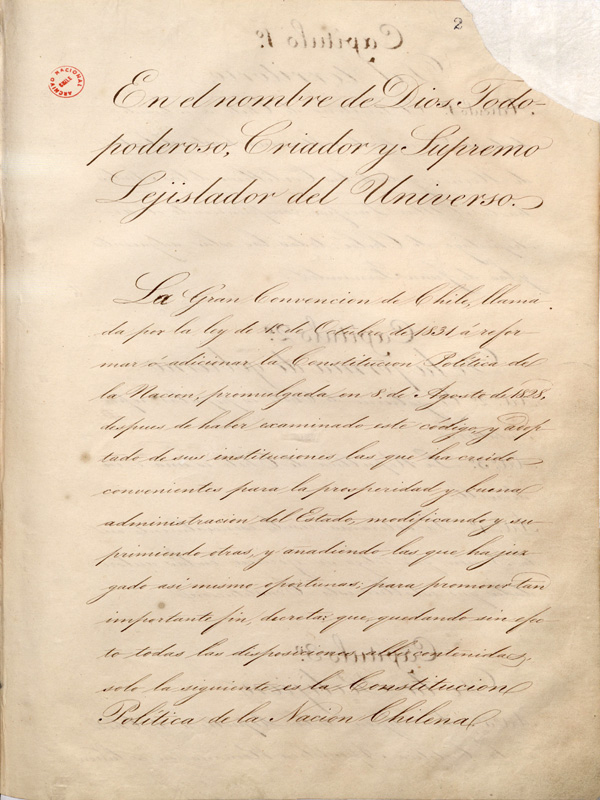 2
ARCHIVO NACIONAL
CHILE
En el nombre de Dios Todo-
poderoso, Criador y Supremo
Lejislador del Universo.
La Gran Convencion de Chile, llama
da por la ley de 1º de Octubre de 1831 á refor-
mar ó adicionar la Constitucion Política de
la Nacion, promulgada en 8 de Agosto de 1828,
despues de haber examinado este código, y adop
tado de sus instituciones las que ha creido
convenientes para la prosperidad y buena
administracion del Estado, modificando y su-
primiendo otras, y añadiendo las que ha juz
gado asi mismo oportunas, para promover tan
importante fin, decreta: que, quedando sin efec
to todas las disposiciones alli contenidas,
solo la siguiente es la Constitucion
Política de la Nacion Chilena.